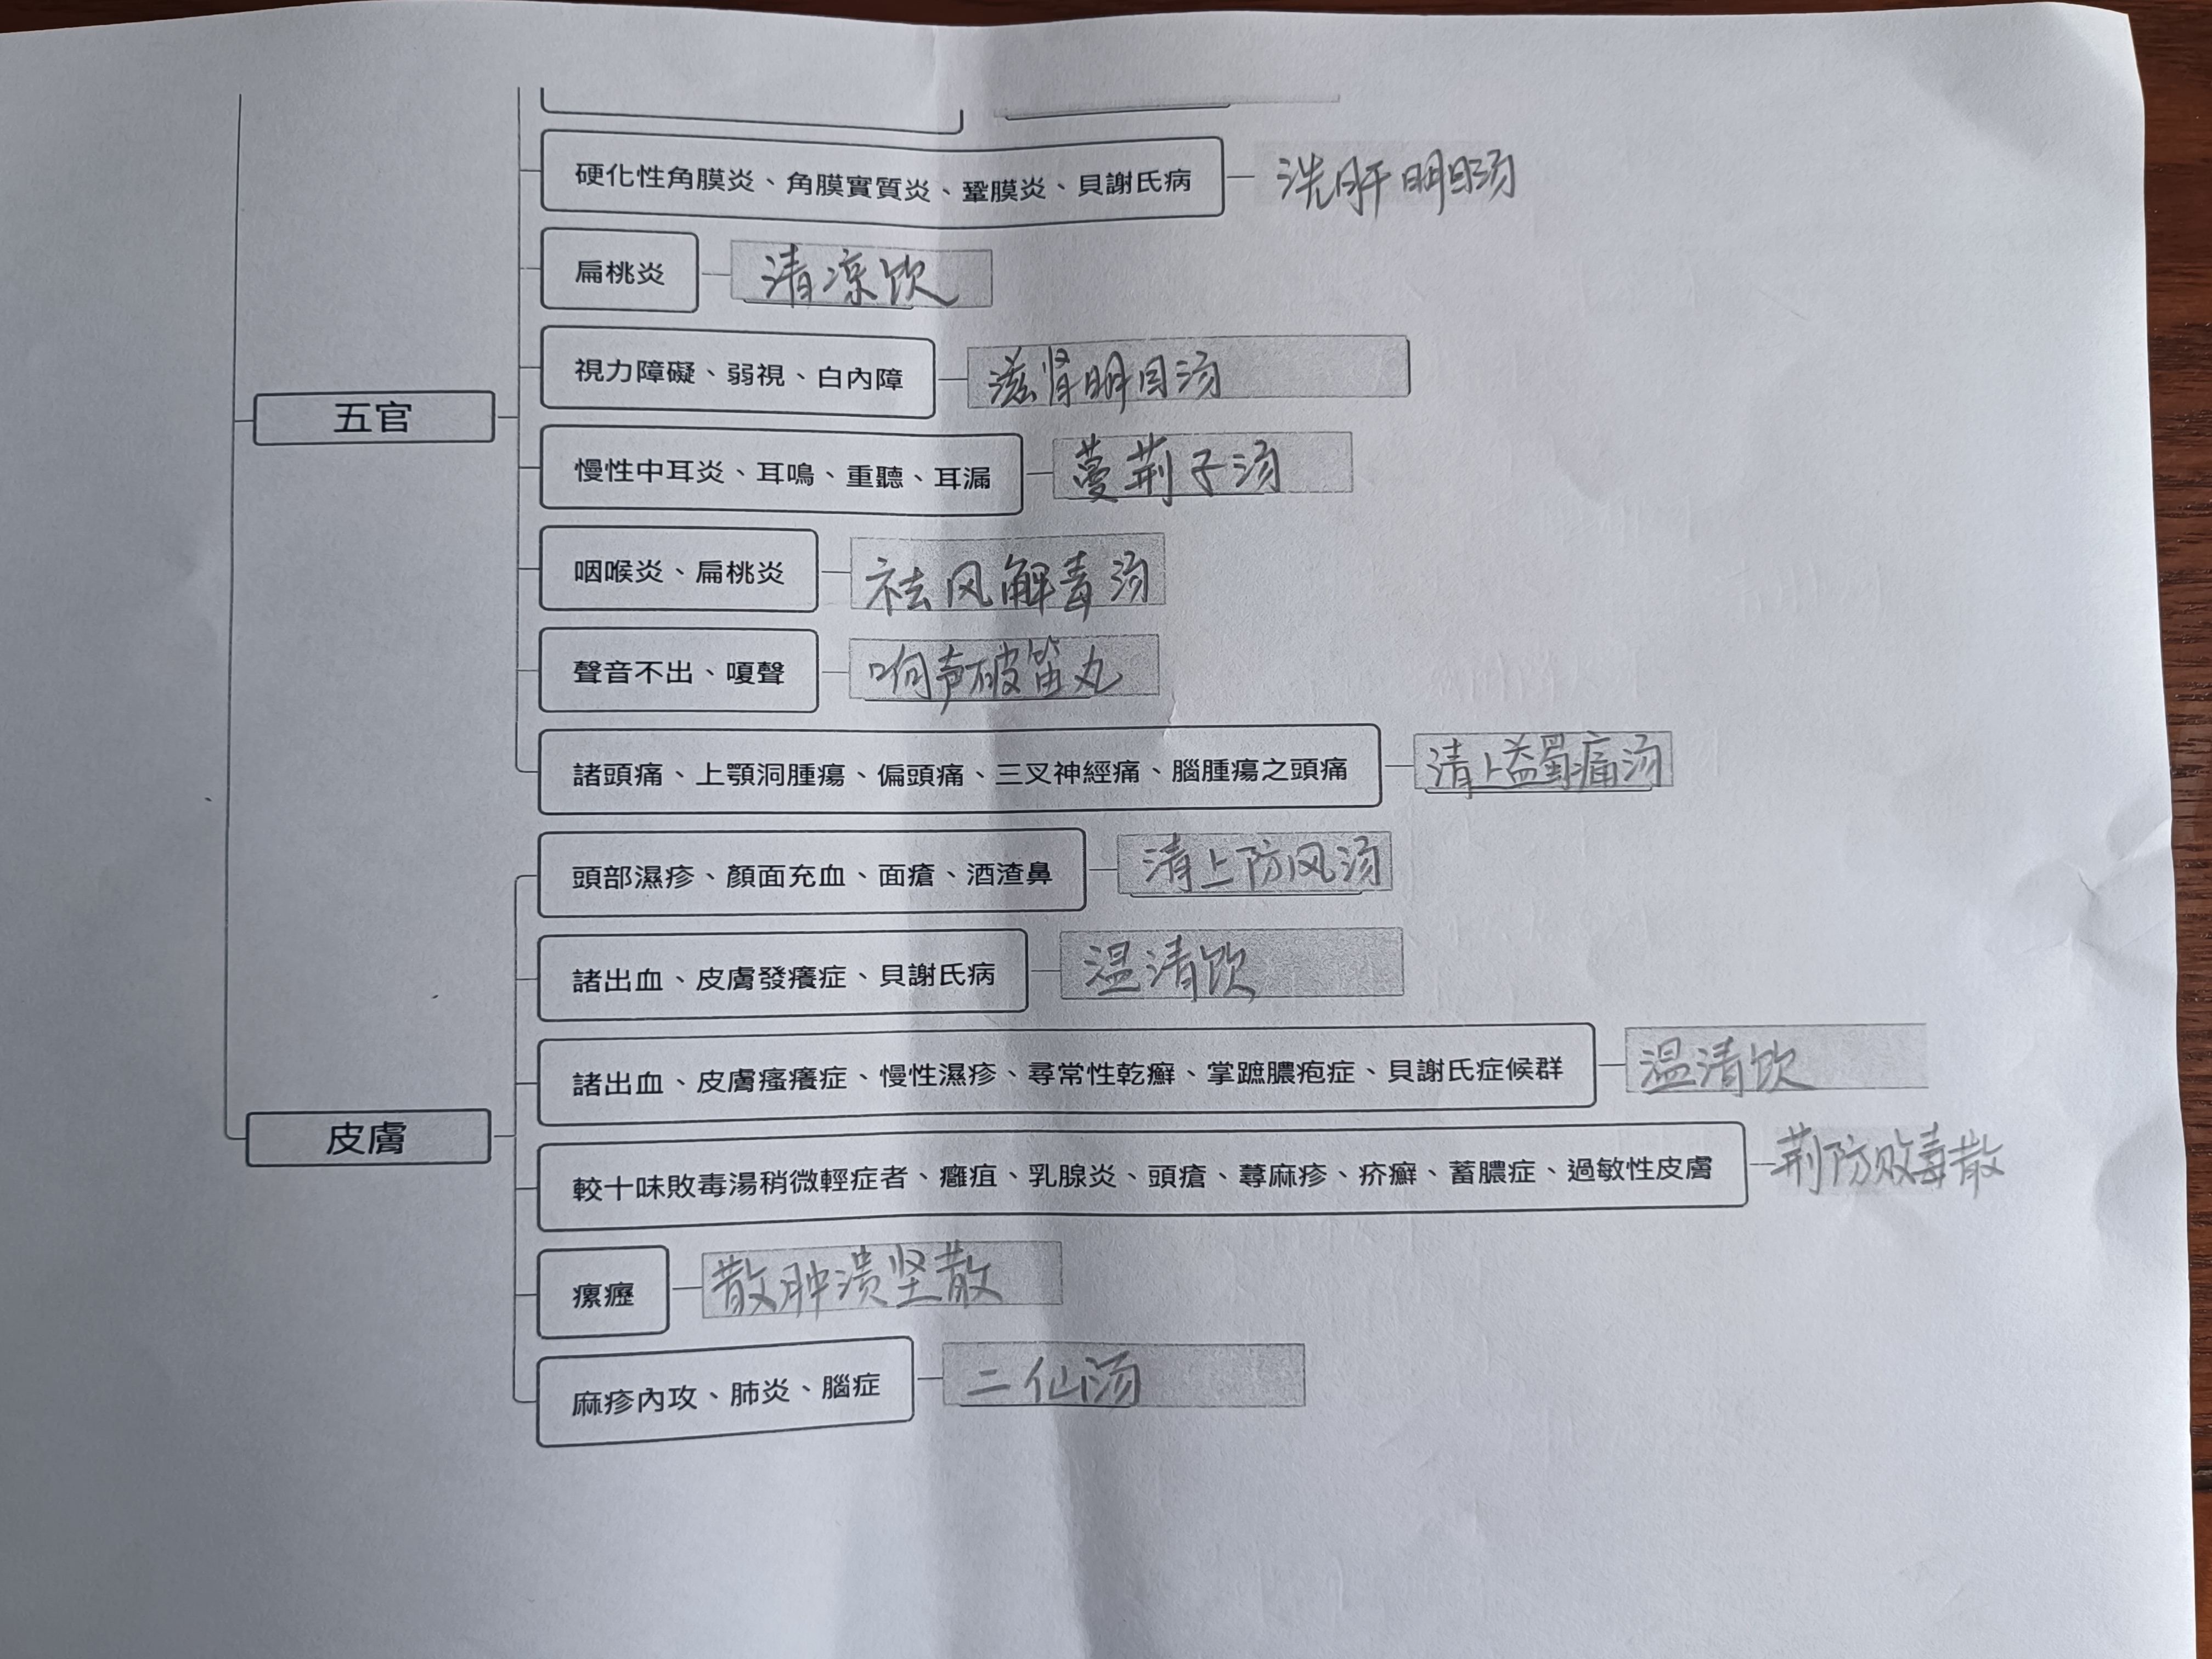 硬化性角膜炎、角膜實質炎、鞏膜炎、貝謝氏病 洗肝明目汤
扁桃炎 清凉饮
視力障礙、弱視、白內障 滋肾明目汤
五官
慢性中耳炎、耳鳴、重聽、耳漏 蔓荆子汤
咽喉炎、扁桃炎 祛风解毒汤
聲音不出、嗄聲 响声破笛丸
諸頭痛、上顎洞腫瘍、偏頭痛、三叉神經痛、腦腫瘍之頭痛 清上蠲痛汤
頭部濕疹、顏面充血、面瘡、酒渣鼻 清上防风汤
諸出血、皮膚發癢症、貝謝氏病 温清饮
諸出血、皮膚瘙癢症、慢性濕疹、尋常性乾癬、掌蹠膿疱症、貝謝氏症候群 温清饮
皮膚
較十味敗毒湯稍微輕症者、癰疽、乳腺炎、頭瘡、蕁麻疹、疥癬、蓄膿症、過敏性皮膚 荆防败毒散
瘰癧 散肿溃坚散
麻疹內攻、肺炎、腦症 二仙汤